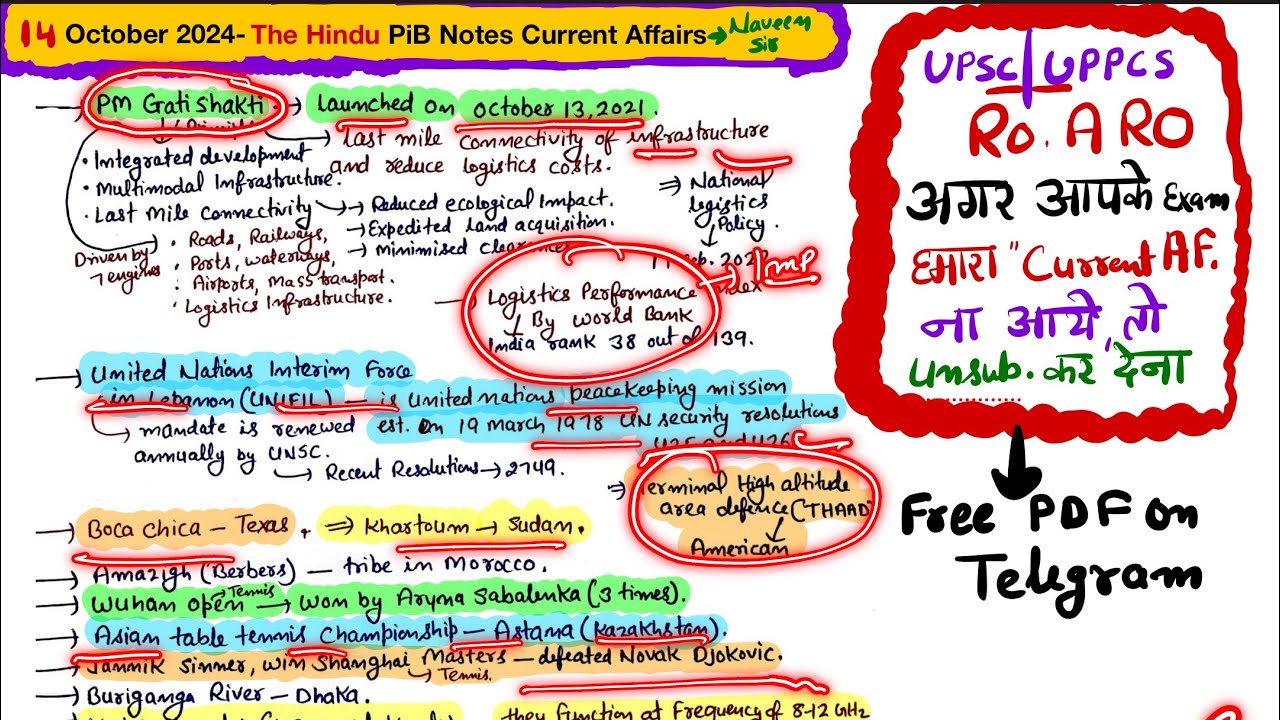 14 October 2024- The Hindu PiB Notes Current Affairs → Naveen Sir
→ PM Gati Shakti → launched on October 13, 2021.
→ last mile connectivity of infrastructure
and reduce logistics costs.
• Integrated development
• Multimodal Infrastructure.
• Last Mile Connectivity
→ Reduced ecological Impact.
→ Expedited land acquisition.
→ Minimised
⇒ National
logistics
Policy.
Driven by
7 engines
• Roads, Railways,
• Ports, waterways,
• Airports, Mass transport.
• Logistics Infrastructure.
→ Logistics Performance Index → Imp
↳ By World Bank
India rank 38 out of 139.
→ United Nations Interim Force
in Lebanon (UNIFIL) — is United nations peacekeeping mission
est. on 19 march 1978 UN security resolutions
↳ mandate is renewed
annually by UNSC.
↳ Recent Resolutions → 2749.
⇒ Terminal High altitude
area defence (THAAD)
↓
American
→ Boca Chica — Texas. ⇒ Khartoum → Sudan.
→ Amazigh (Berbers) — tribe in Morocco.
→ Wuhan open → won by Aryna Sabalenka (3 times).
→ Tennis
→ Asian table tennis Championship — Astana (Kazakhstan).
→ Jannik Sinner, win Shanghai Masters — defeated Novak Djokovic.
↳ Tennis.
→ Buriganga River — Dhaka.
they function at frequency of 8-12 GHz
UPSC | UPPCS
RO. ARO
अगर आपके Exam
हमारा "Current AF.
ना आये, तो
Unsub. कर देना
Free PDF on
Telegram